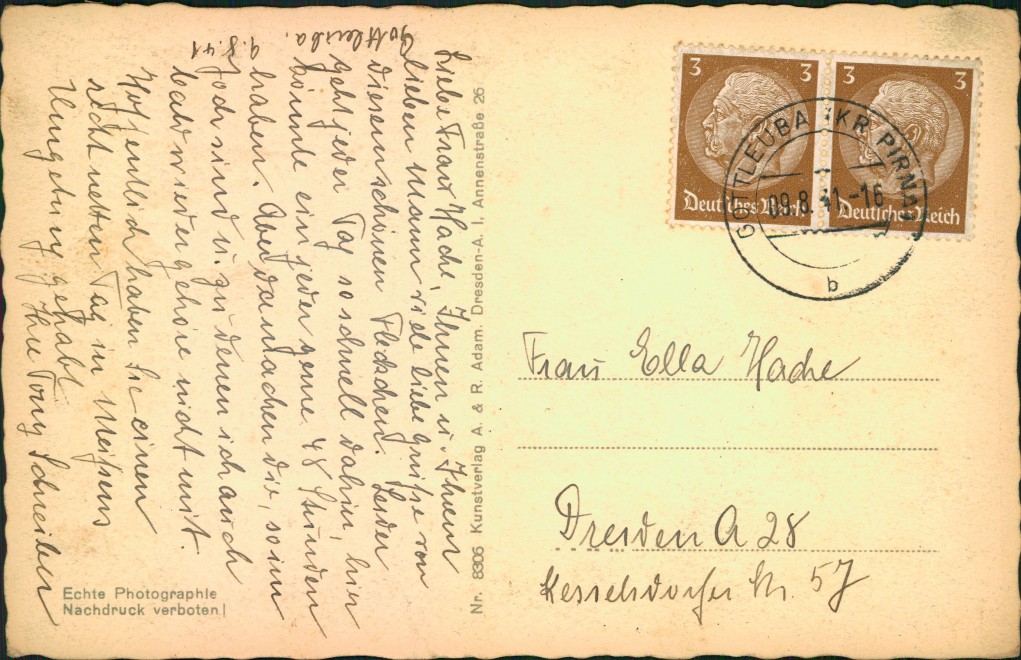 Gottleuba.
9.8.41
Liebe Frau Hache, Ihnen u. Ihrem
lieben Mann viele liebe Grüße von
diesem schönen Fleckchen. Leider
geht jeder Tag so schnell dahin, hier
könnte ein jeder gerne 48 Stunden
haben. Aber da machen die, so im
Joch sind u. zu denen ich auch
bald wieder gehöre nicht mit.
Hoffentlich haben Sie einen
recht netten Tag in Meißens
Umgebung gehabt.
Ihre Tony Schreiber
Echte Photographie
Nachdruck verboten!
Nr. 8306 Kunstverlag A. & R. Adam. Dresden-A. I, Annenstraße 26
3 3
Deutsches Reich
3 3
Deutsches Reich
GOTTLEUBA (KR. PIRNA)
09.8.41.-16
b
Frau Ella Hache
Dresden A 28
Kesselsdorfer Str. 57